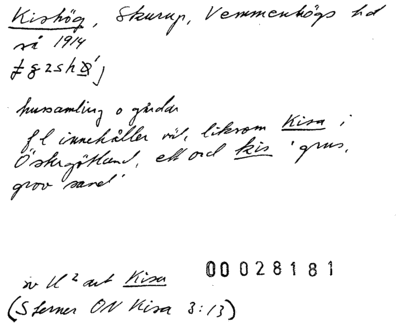 Kishög, Skurup, Vemmenhögs hd
så 1914
hussamling o gårdar
f l innehåller väl, liksom Kisa i
Östergötland, ett ord kis 'grus,
grov sand'
00028181
av U² art Kisa
(Sterner ON Kisa 3:13)